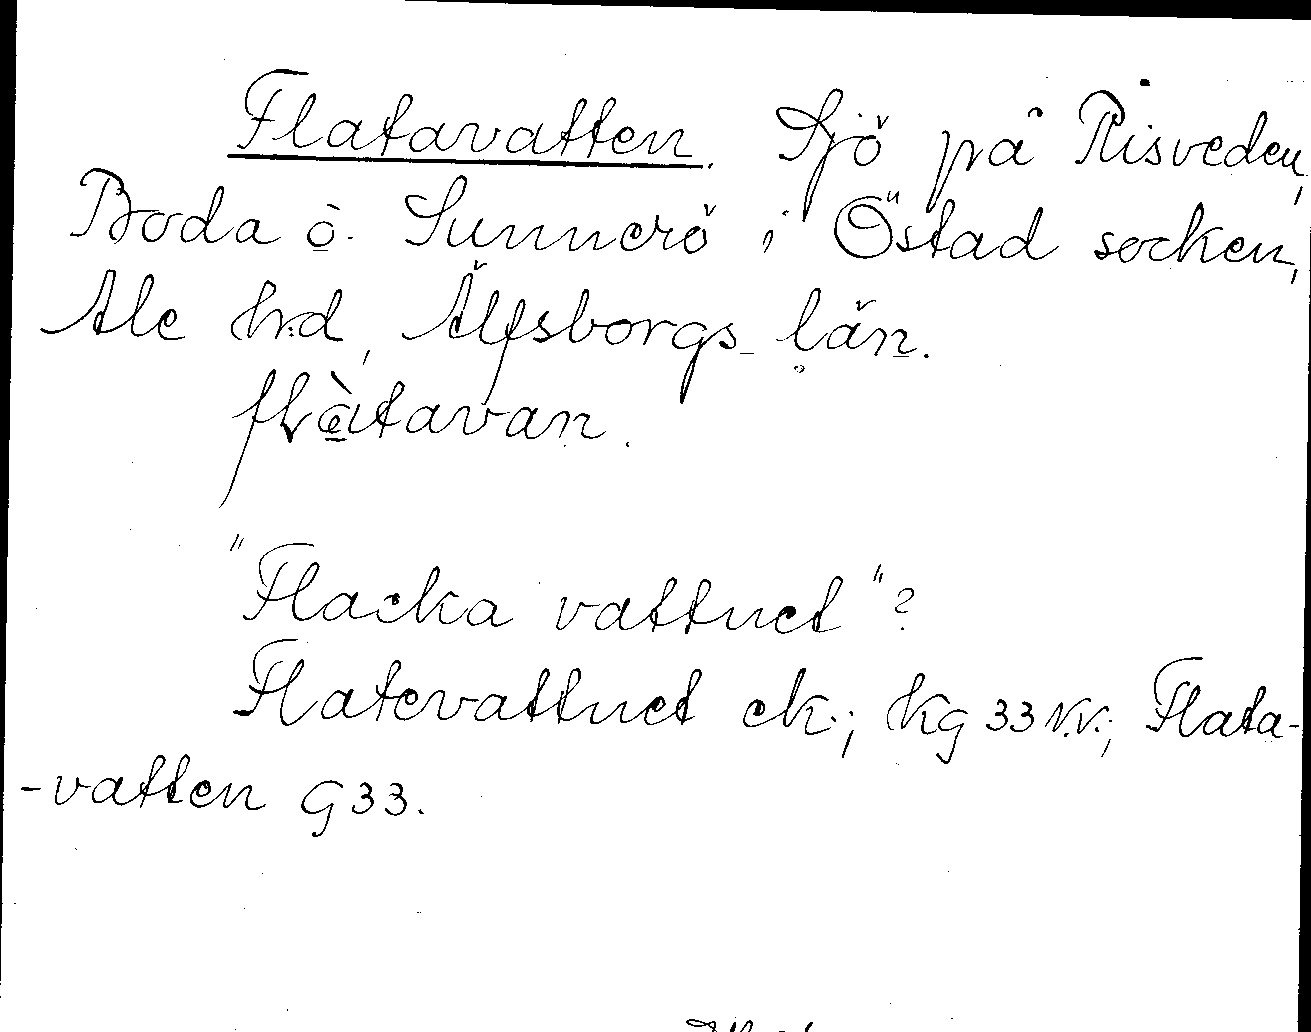 Flatavatten. Sjö på Risveden,
Boda o. Sunnerö i Östad socken,
Ale hd, Älfsborgs län.
flàtavan.
"Flacka vattnet"?
Flatevattnet ek.; kg 33 N.V.; Flata-
-vatten G33.